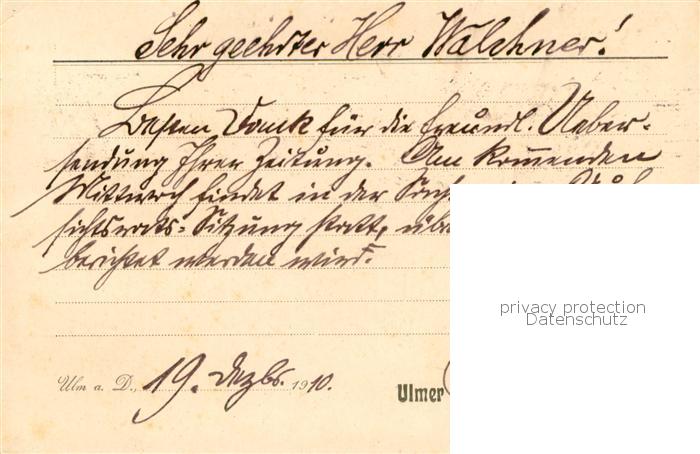 Sehr geehrter Herr Walchner!
Besten Dank für die freundl. Ueber-
sendung Ihrer Zeitung. Am kommenden
Mittwoch findet in der Sache eine
sichtsrats-Sitzung statt, übe
berichtet werden wird.
privacy protection
Datenschutz
Ulm a. D., 19. Dezbr. 1910.
Ulmer